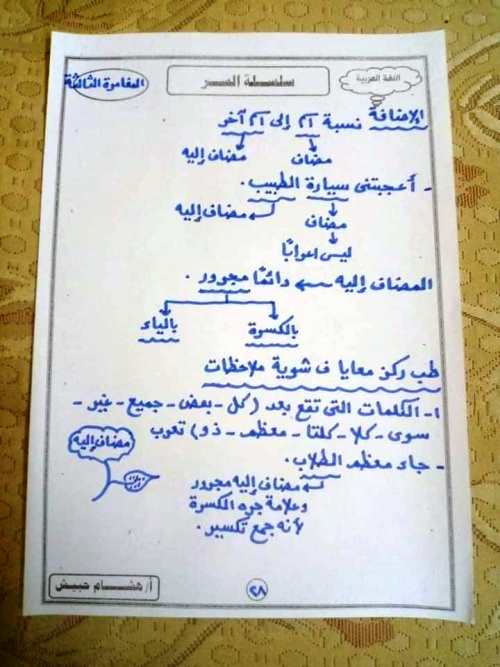 اللغة العربية
سلسلة السر
المغامرة الثالثة
الإضافة نسبة اسم إلى اسم آخر
مضاف مضاف إليه
- أعجبتنى سيارة الطبيب.
مضاف مضاف إليه
ليس اعرابًا
المضاف إليه ← دائمًا مجرور.
بالكسرة بالياء
طب ركز معايا ف شوية ملاحظات
١- الكلمات التى تقع بعد (كل - بعض - جميع - غير -
سوى - كلا - كلتا - معظم - ذو) تعرب
مضاف إليه
- جاء معظم الطلاب.
مضاف إليه مجرور
وعلامة جره الكسرة
لأنه جمع تكسير.
أ/ هشام حبيش
٢٨